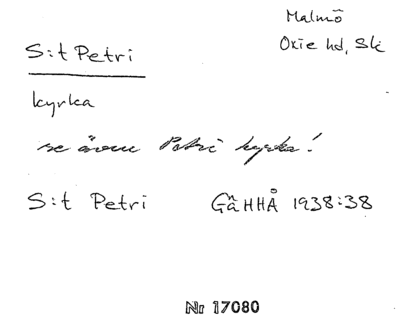 Malmö
Oxie hd, Sk
S:t Petri
kyrka
se även Petri kyrka!
S:t Petri GåHHÅ 1938:38
Nr 17080